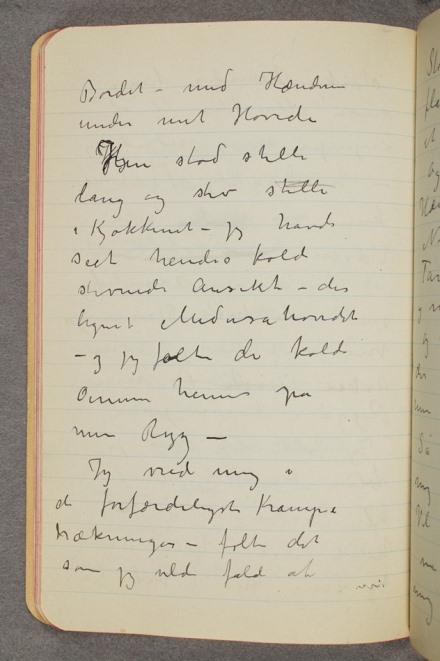 Bordet – med Hænderne
under mit Hovede
Hun stod stille
lang og stiv stille
i Kjøkkenet – jeg havde
seet hendes kolde
stirrende Ansikt – der
lignet Medusahovedet
– og jeg følte de kolde
Øinene hennes paa
min Ryg –
Jeg vred mig i
de forfærdeligste Krampe
trækninger – følte det
som jeg vilde falde